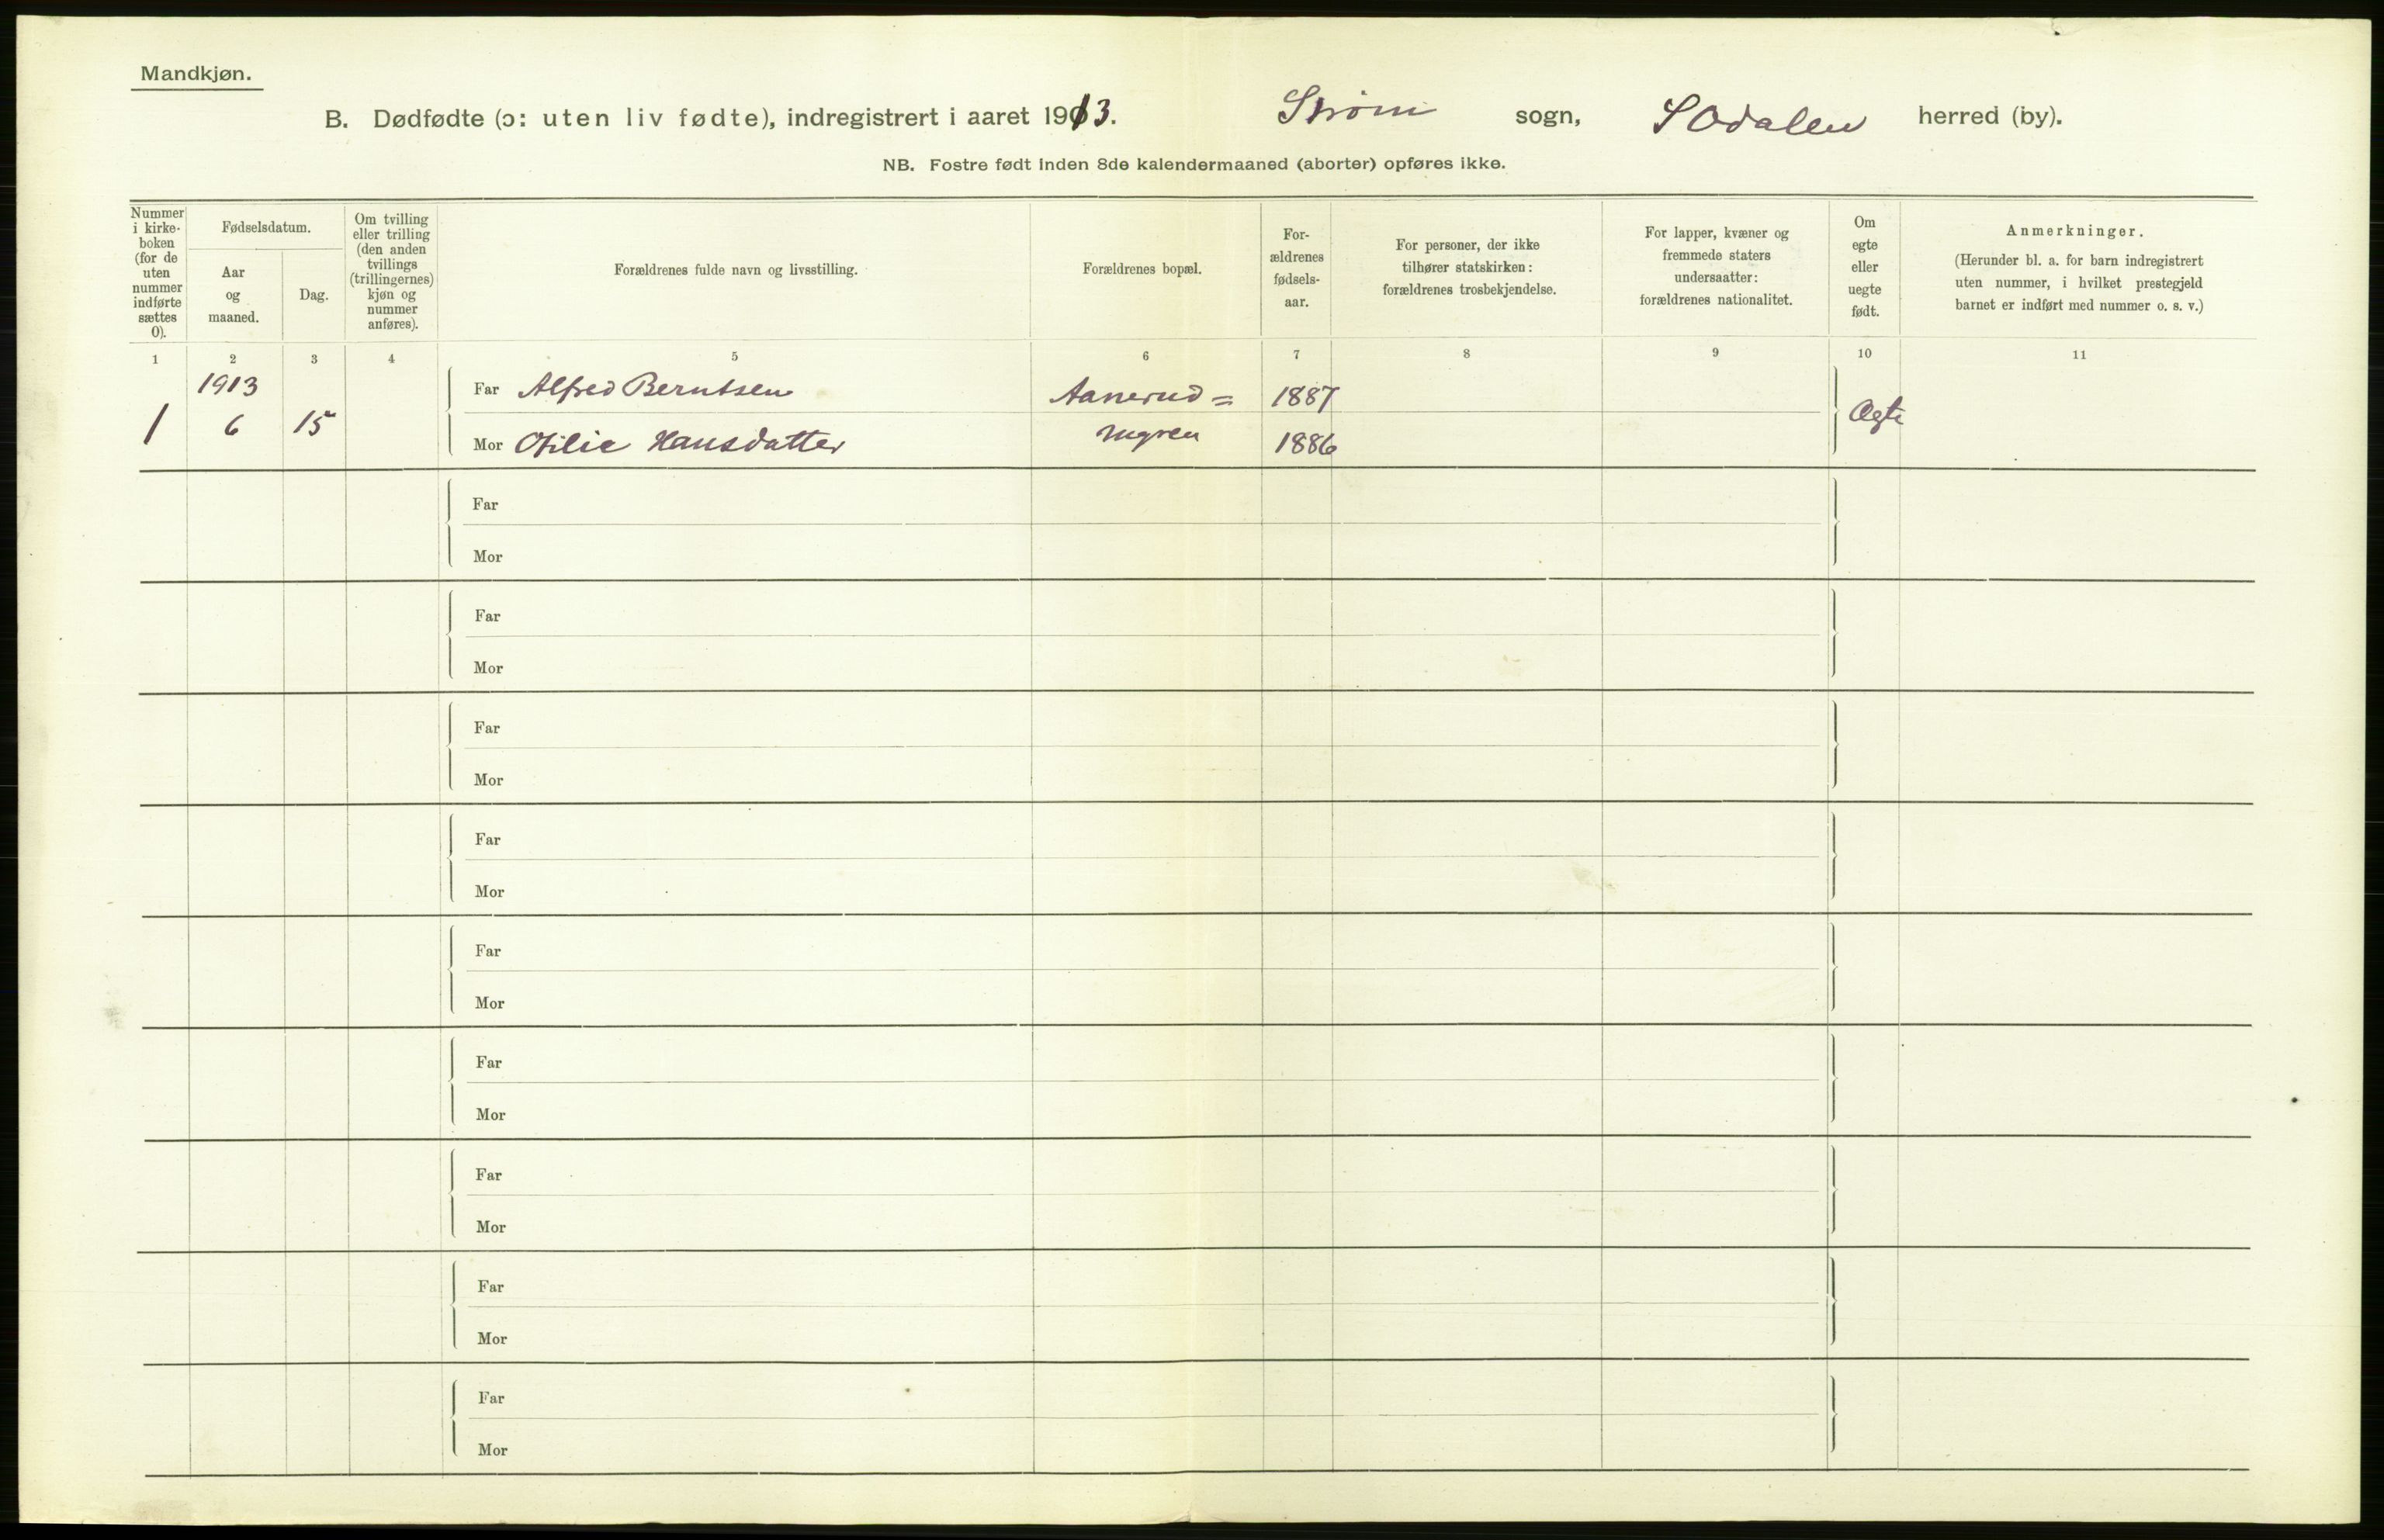 Mandkjøn.
B. Dødfødte (ɔ: uten liv fødte), indregistrert i aaret 1913. Strøm sogn, S Odalen herred (by).
NB. Fostre født inden 8de kalendermaaned (aborter) opføres ikke.
Nummer i kirke-boken (for de uten nummer indførte sættes 0).
Fødselsdatum.
Aar og maaned.
Dag.
Om tvilling eller trilling (den anden tvillings (trillingernes) kjøn og nummer anføres).
Forældrenes fulde navn og livsstilling.
Forældrenes bopæl.
For-ældrenes fødsels-aar.
For personer, der ikke tilhører statskirken: forældrenes trosbekjendelse.
For lapper, kvæner og fremmede staters undersaatter: forældrenes nationalitet.
Om egte eller uegte født.
Anmerkninger.
(Herunder bl. a. for barn indregistrert uten nummer, i hvilket prestegjeld barnet er indført med nummer o. s. v.)
1 2 3 4 5 6 7 8 9 10 11
1913 Far Alfred Berntsen Aanerud= 1887 Ægte
1 6 15 Mor Otilie Hansdatter myren 1886
Far
Mor
Far
Mor
Far
Mor
Far
Mor
Far
Mor
Far
Mor
Far
Mor
Far
Mor
Far
Mor